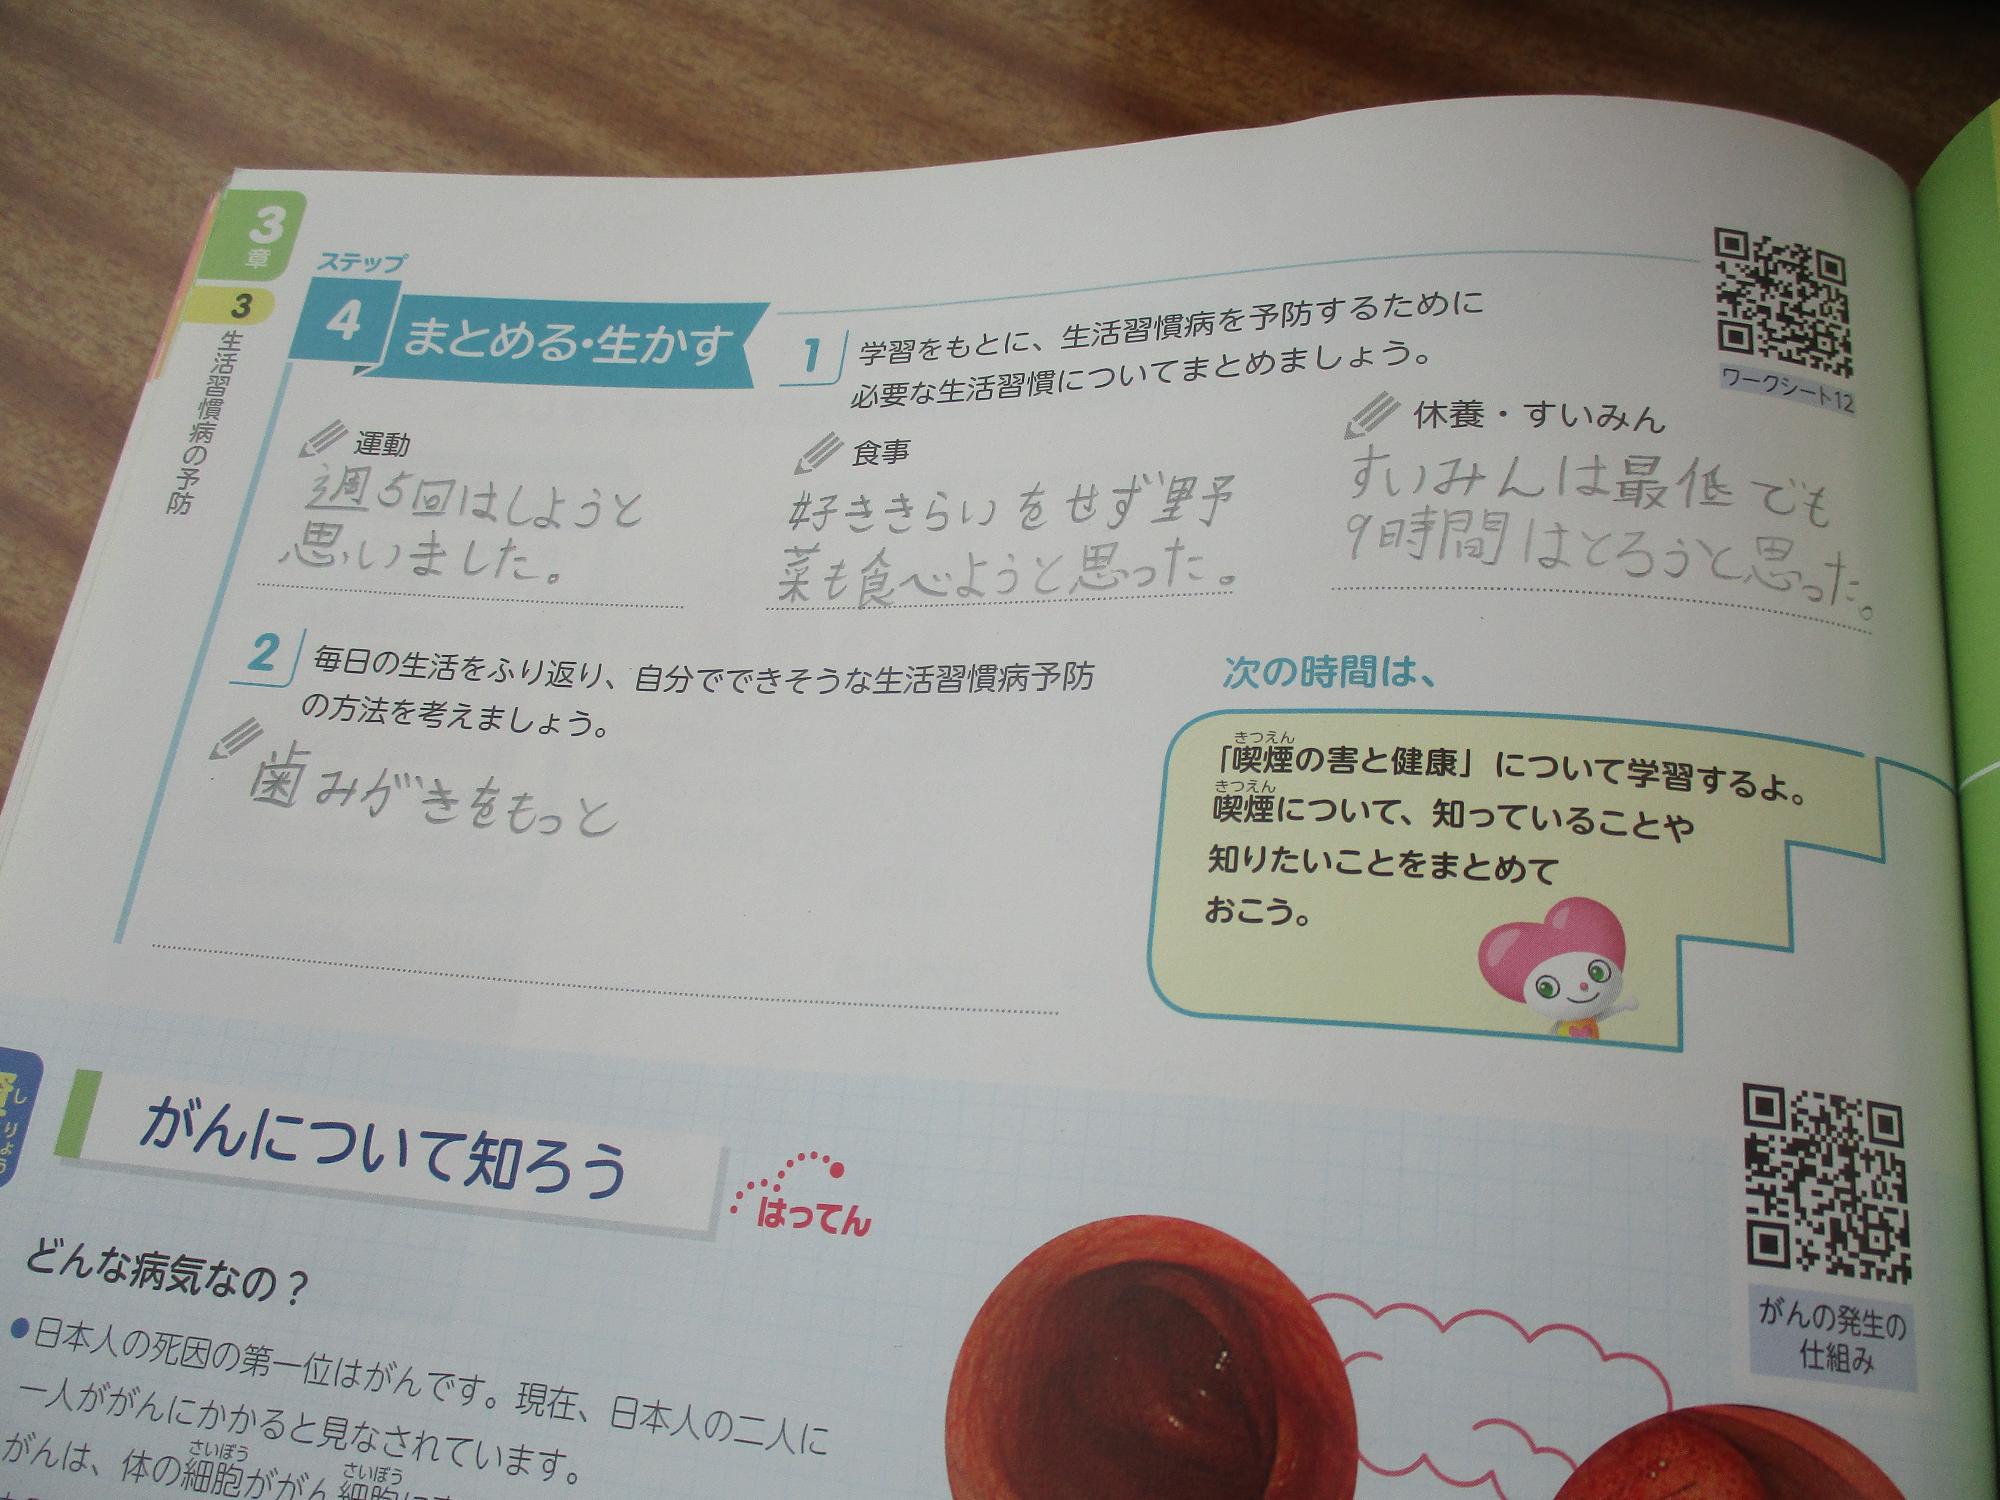 3
章
3
生活習慣病の予防
ステップ
4
まとめる・生かす
1
学習をもとに、生活習慣病を予防するために
必要な生活習慣についてまとめましょう。
ワークシート12
運動
週5回はしようと
思いました。
食事
好ききらいをせず野
菜も食べようと思った。
休養・すいみん
すいみんは最低でも
9時間はとろうと思った。
2
毎日の生活をふり返り、自分でできそうな生活習慣病予防
の方法を考えましょう。
歯みがきをもっと
次の時間は、
きつえん
「喫煙の害と健康」について学習するよ。
きつえん
喫煙について、知っていることや
知りたいことをまとめて
おこう。
しりょう
がんについて知ろう
はってん
どんな病気なの？
●日本人の死因の第一位はがんです。現在、日本人の二人に
一人ががんにかかると見なされています。
さいぼう
さいぼう
がんは、体の細胞ががん細胞に
がんの発生の
仕組み